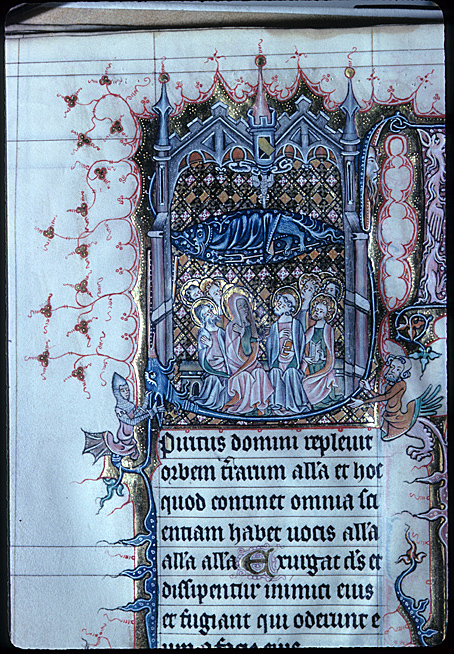 Piritus domini repleuit
orbem t̄rarum alla et hoc
quod continet omnia sci
entiam habet uocis alla
alla alla Exurgat d̄s et
dissipentur inimici eius
et fugiant qui oderunt e
um a facie eius